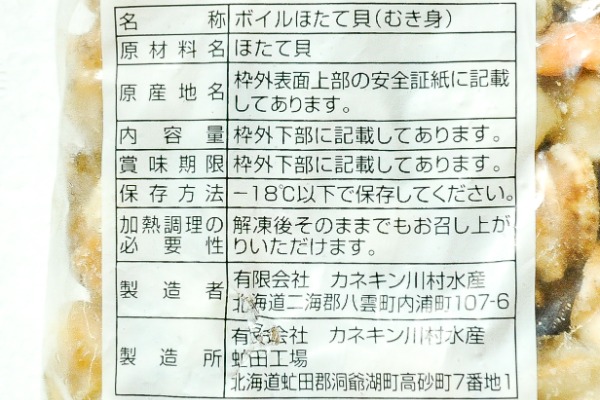 名称 ボイルほたて貝(むき身)
原材料名 ほたて貝
原産地名 枠外表面上部の安全証紙に記載
してあります。
内容量 枠外下部に記載してあります。
賞味期限 枠外下部に記載してあります。
保存方法 −18℃以下で保存してください。
加熱調理の 解凍後そのままでもお召し上が
必要性 りいただけます。
製造者 有限会社 カネキン川村水産
北海道二海郡八雲町内浦町107-6
製造所 有限会社 カネキン川村水産
虻田工場
北海道虻田郡洞爺湖町高砂町7番地1